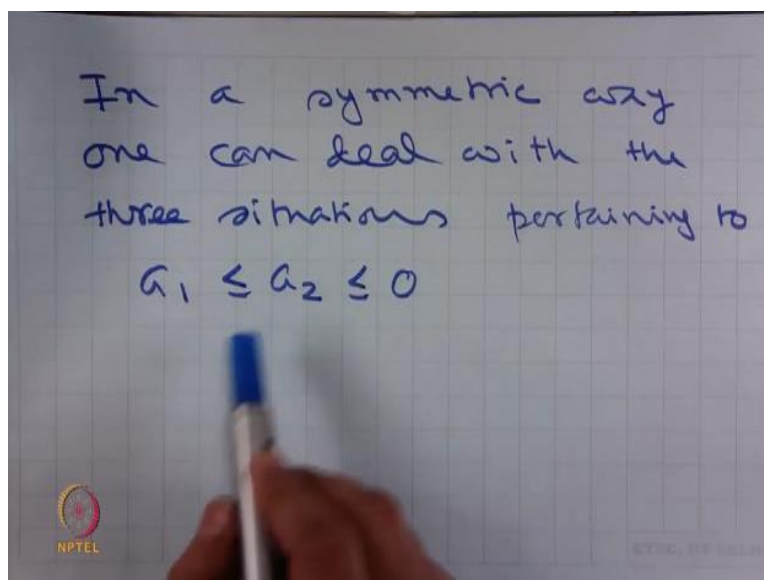 In a symmetric way
one can deal with the
three situations pertaining to
a₁ ≤ a₂ ≤ 0
NPTEL